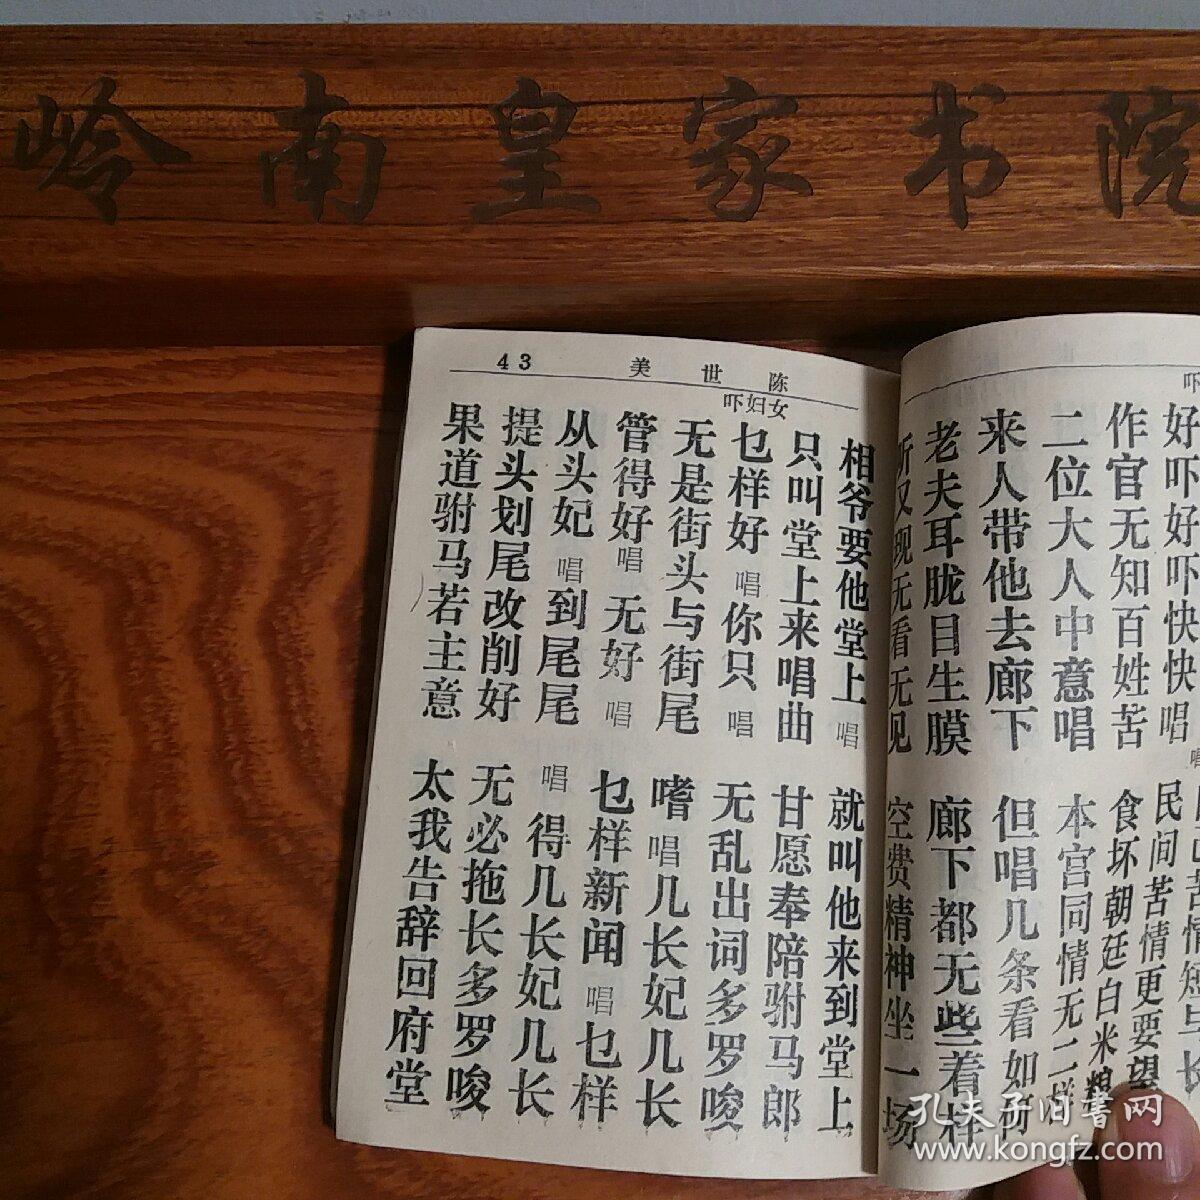 岭南皇家书院
好吓好吓快快唱 民间苦情更要望
作官无知百姓苦 食坏朝廷白米粮
二位大人中意唱 本宫同情无二样
来人带他去廊下 但唱几条看如何
老夫耳胧目生膜 廊下都无些着样
听又现无看无见 空费精神坐一场
43 陈世美
吓妇女
相爷要他堂上唱 就叫他来到堂上
只叫堂上来唱曲 甘愿奉陪驸马郎
乜样好唱你只唱 无乱出词多罗唆
无是街头与街尾 嗜唱几长妃几长
管得好唱无好唱 乜样新闻唱乜样
从头妃唱到尾尾 唱得几长妃几长
提头划尾改削好 无必拖长多罗唆
果道驸马若主意 太我告辞回府堂
孔夫子旧书网
www.kongfz.com